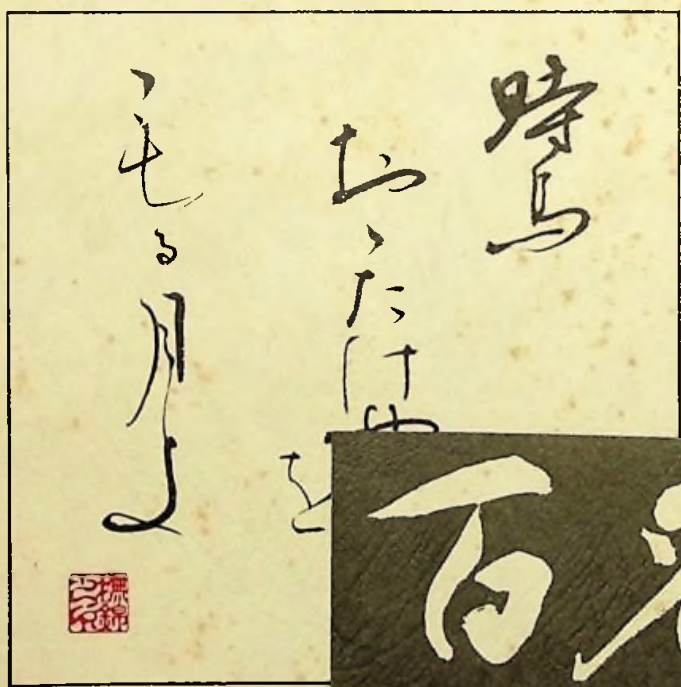 時鳥
おゝたけや
を
毛る月よ
百